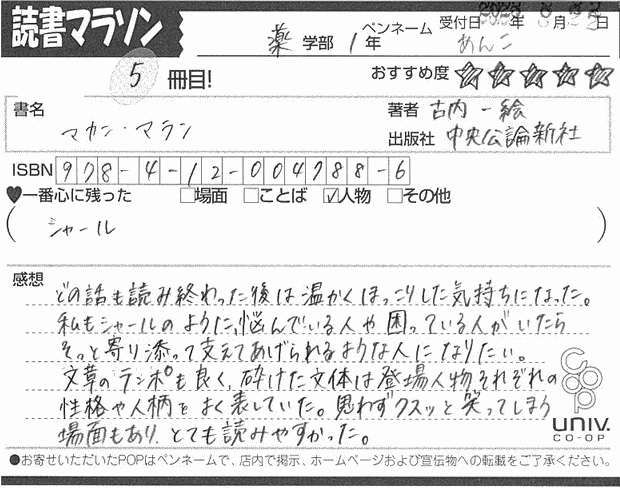 読書マラソン
薬 学部 1 年
ペンネーム あんこ
受付日 年 8月 22日
5 冊目!
おすすめ度 ☆☆☆☆☆
書名 マカン・マラン
著者 古内 一絵
出版社 中央公論新社
ISBN 978-4-12-004788-6
♥一番心に残った □場面 □ことば ☑人物 □その他
( シャール )
感想
どの話も読み終わった後は温かくほっこりした気持ちになった。
私もシャールのように、悩んでいる人や困っている人がいたら
そっと寄り添って支えてあげられるような人になりたい。
文章のテンポも良く、砕けた文体は登場人物それぞれの
性格や人柄をよく表していた。思わずクスッと笑ってしまう
場面もあり、とても読みやすかった。
coop
UNIV.
CO-OP
●お寄せいただいたPOPはペンネームで、店内で掲示、ホームページおよび宣伝物への転載をご了承ください。